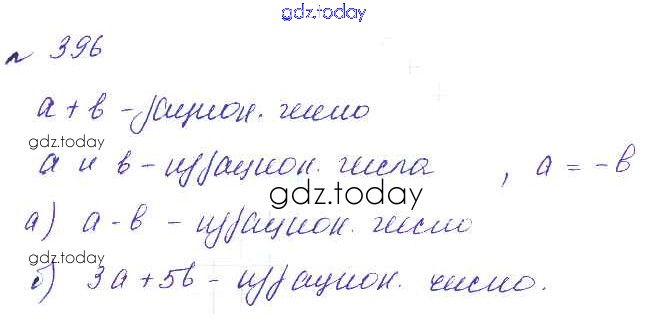 gdz.today
№ 396
a + b - рацион. число
gdz.today
a и b - иррацион. числа , a = -b
gdz.today
а) a - b - иррацион. число
gdz.today
б) 3a + 5b - иррацион. число.